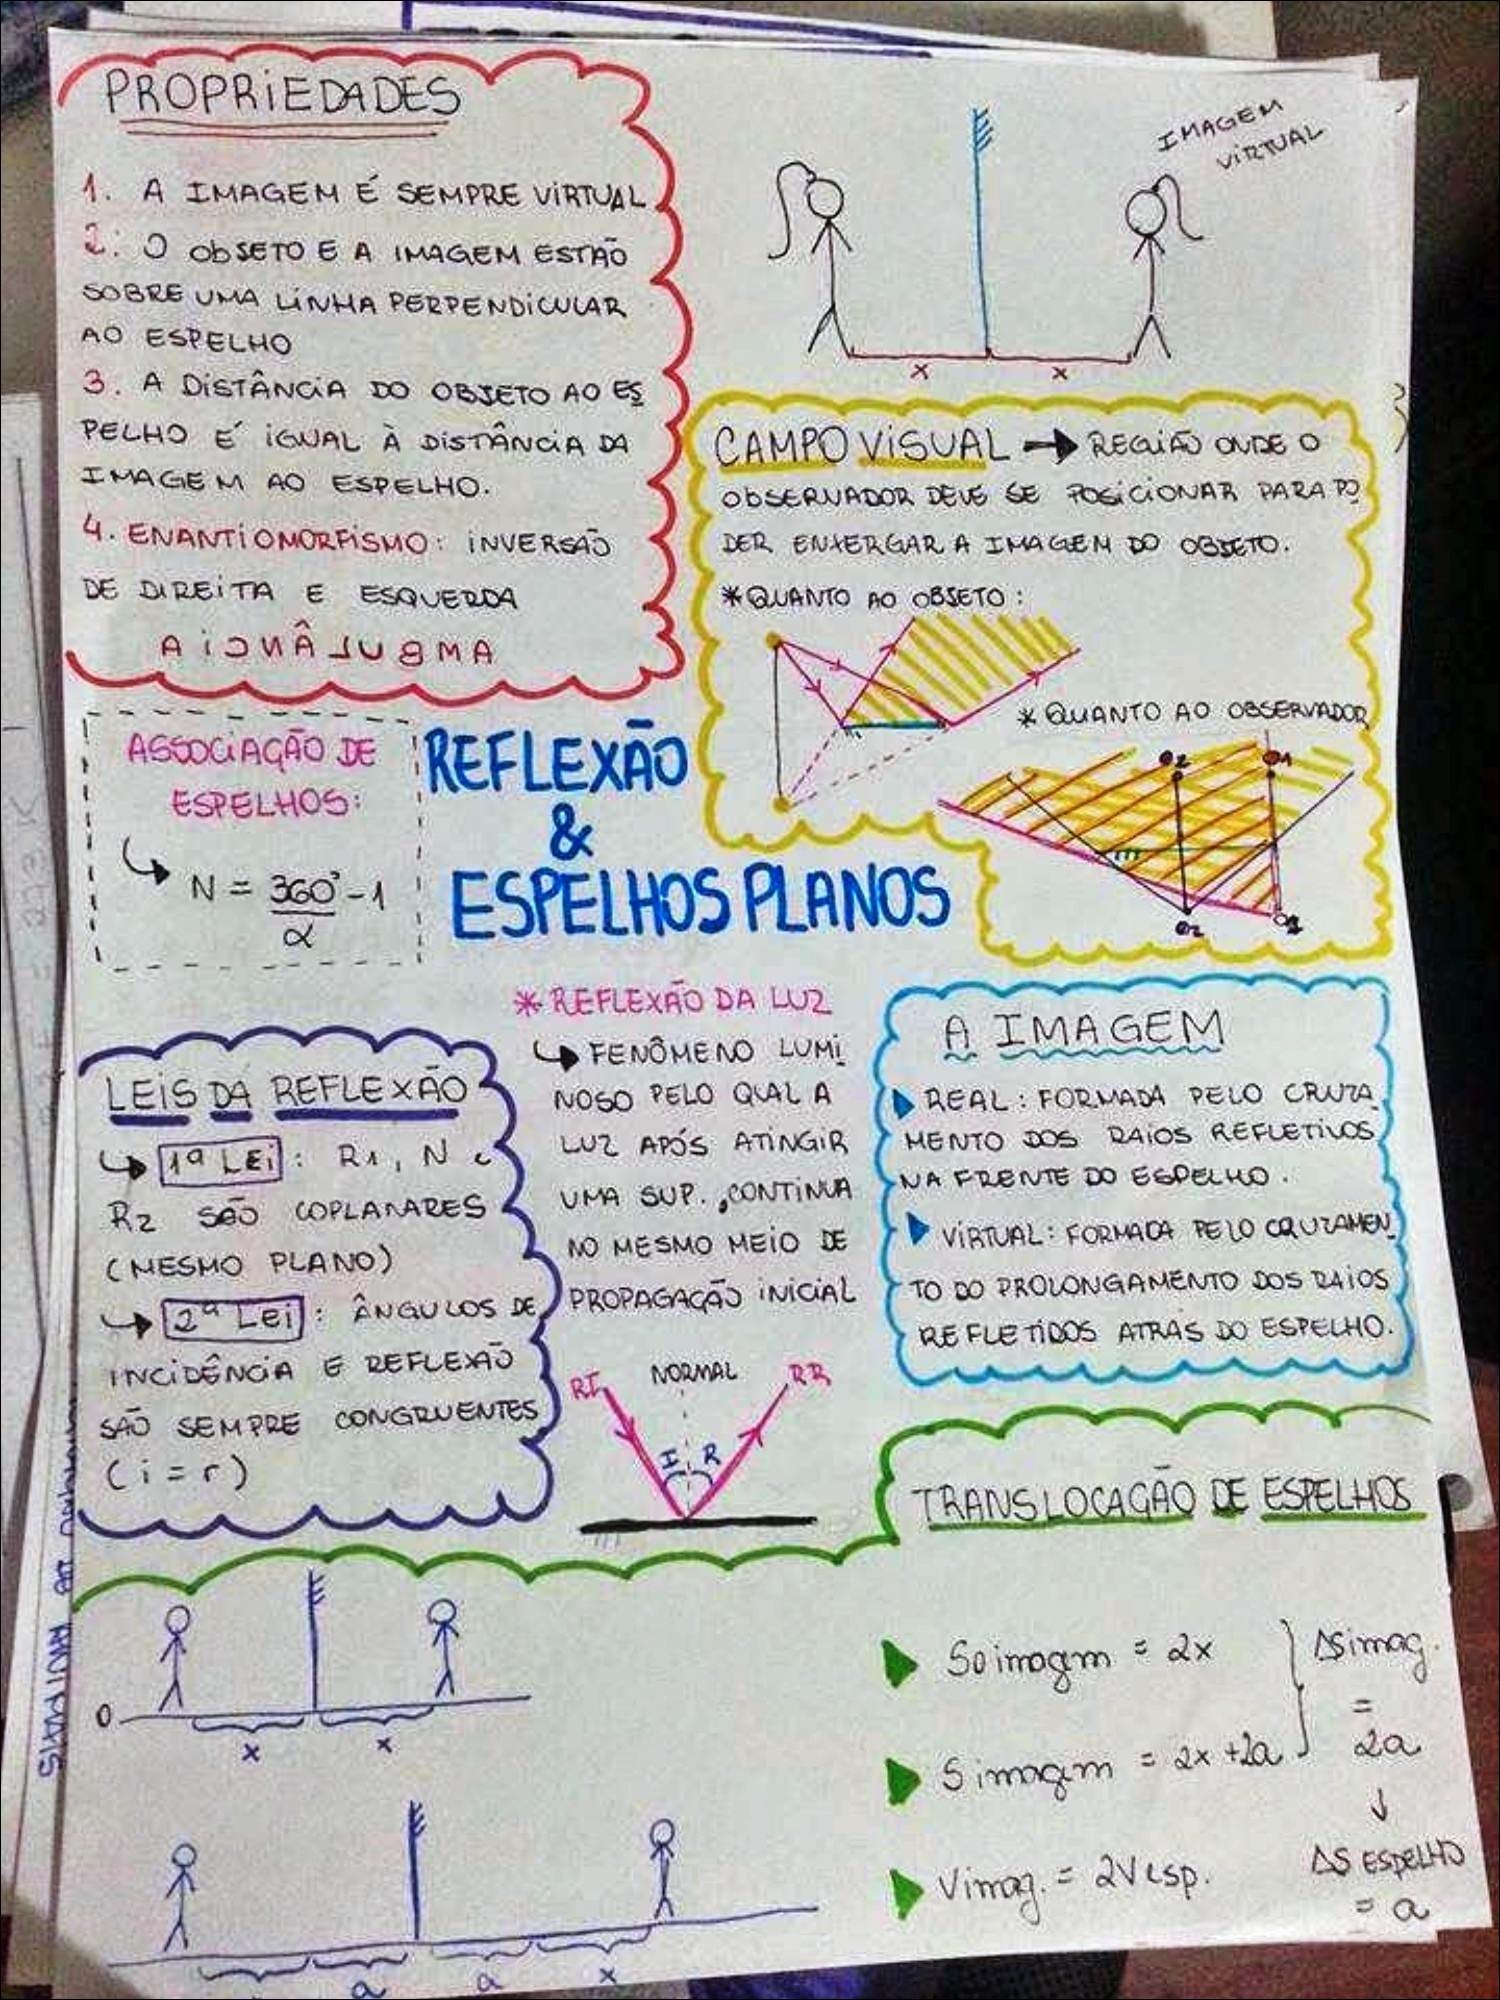 PROPRIEDADES
1. A IMAGEM É SEMPRE VIRTUAL
2. O OBJETO E A IMAGEM ESTÃO
SOBRE UMA LINHA PERPENDICULAR
AO ESPELHO
3. A DISTÂNCIA DO OBJETO AO ES
PELHO É IGUAL À DISTÂNCIA DA
IMAGEM AO ESPELHO.
4. ENANTIOMORFISMO: INVERSÃO
DE DIREITA E ESQUERDA
AMBULÂNCIA
IMAGEM
VIRTUAL
x x
CAMPO VISUAL → REGIÃO ONDE O
OBSERVADOR DEVE SE POSICIONAR PARA PO
DER ENXERGAR A IMAGEM DO OBJETO.
*QUANTO AO OBJETO:
* QUANTO AO OBSERVADOR
O2 O1
m
O2
ASSOCIAÇÃO DE
ESPELHOS:
N = 360° - 1
α
REFLEXÃO
&
ESPELHOS PLANOS
* REFLEXÃO DA LUZ
FENÔMENO LUMI
NOSO PELO QUAL A
LUZ APÓS ATINGIR
UMA SUP., CONTINUA
NO MESMO MEIO DE
PROPAGAÇÃO INICIAL
RI NORMAL RR
I R
LEIS DA REFLEXÃO
1ª LEI: R1, N e
R2 SÃO COPLANARES
(MESMO PLANO)
2ª LEI: ÂNGULOS DE
INCIDÊNCIA E REFLEXÃO
SÃO SEMPRE CONGRUENTES
(i = r)
A IMAGEM
REAL: FORMADA PELO CRUZA
MENTO DOS RAIOS REFLETIDOS
NA FRENTE DO ESPELHO.
VIRTUAL: FORMADA PELO CRUZAMEN
TO DO PROLONGAMENTO DOS RAIOS
REFLETIDOS ATRÁS DO ESPELHO.
TRANSLOCAÇÃO DE ESPELHOS
0
x x
a a x
So imagem = 2x
S imagem = 2x + 2a
Vimag. = 2Vesp.
ΔSimag.
=
2a
↓
ΔS ESPELHO
= a